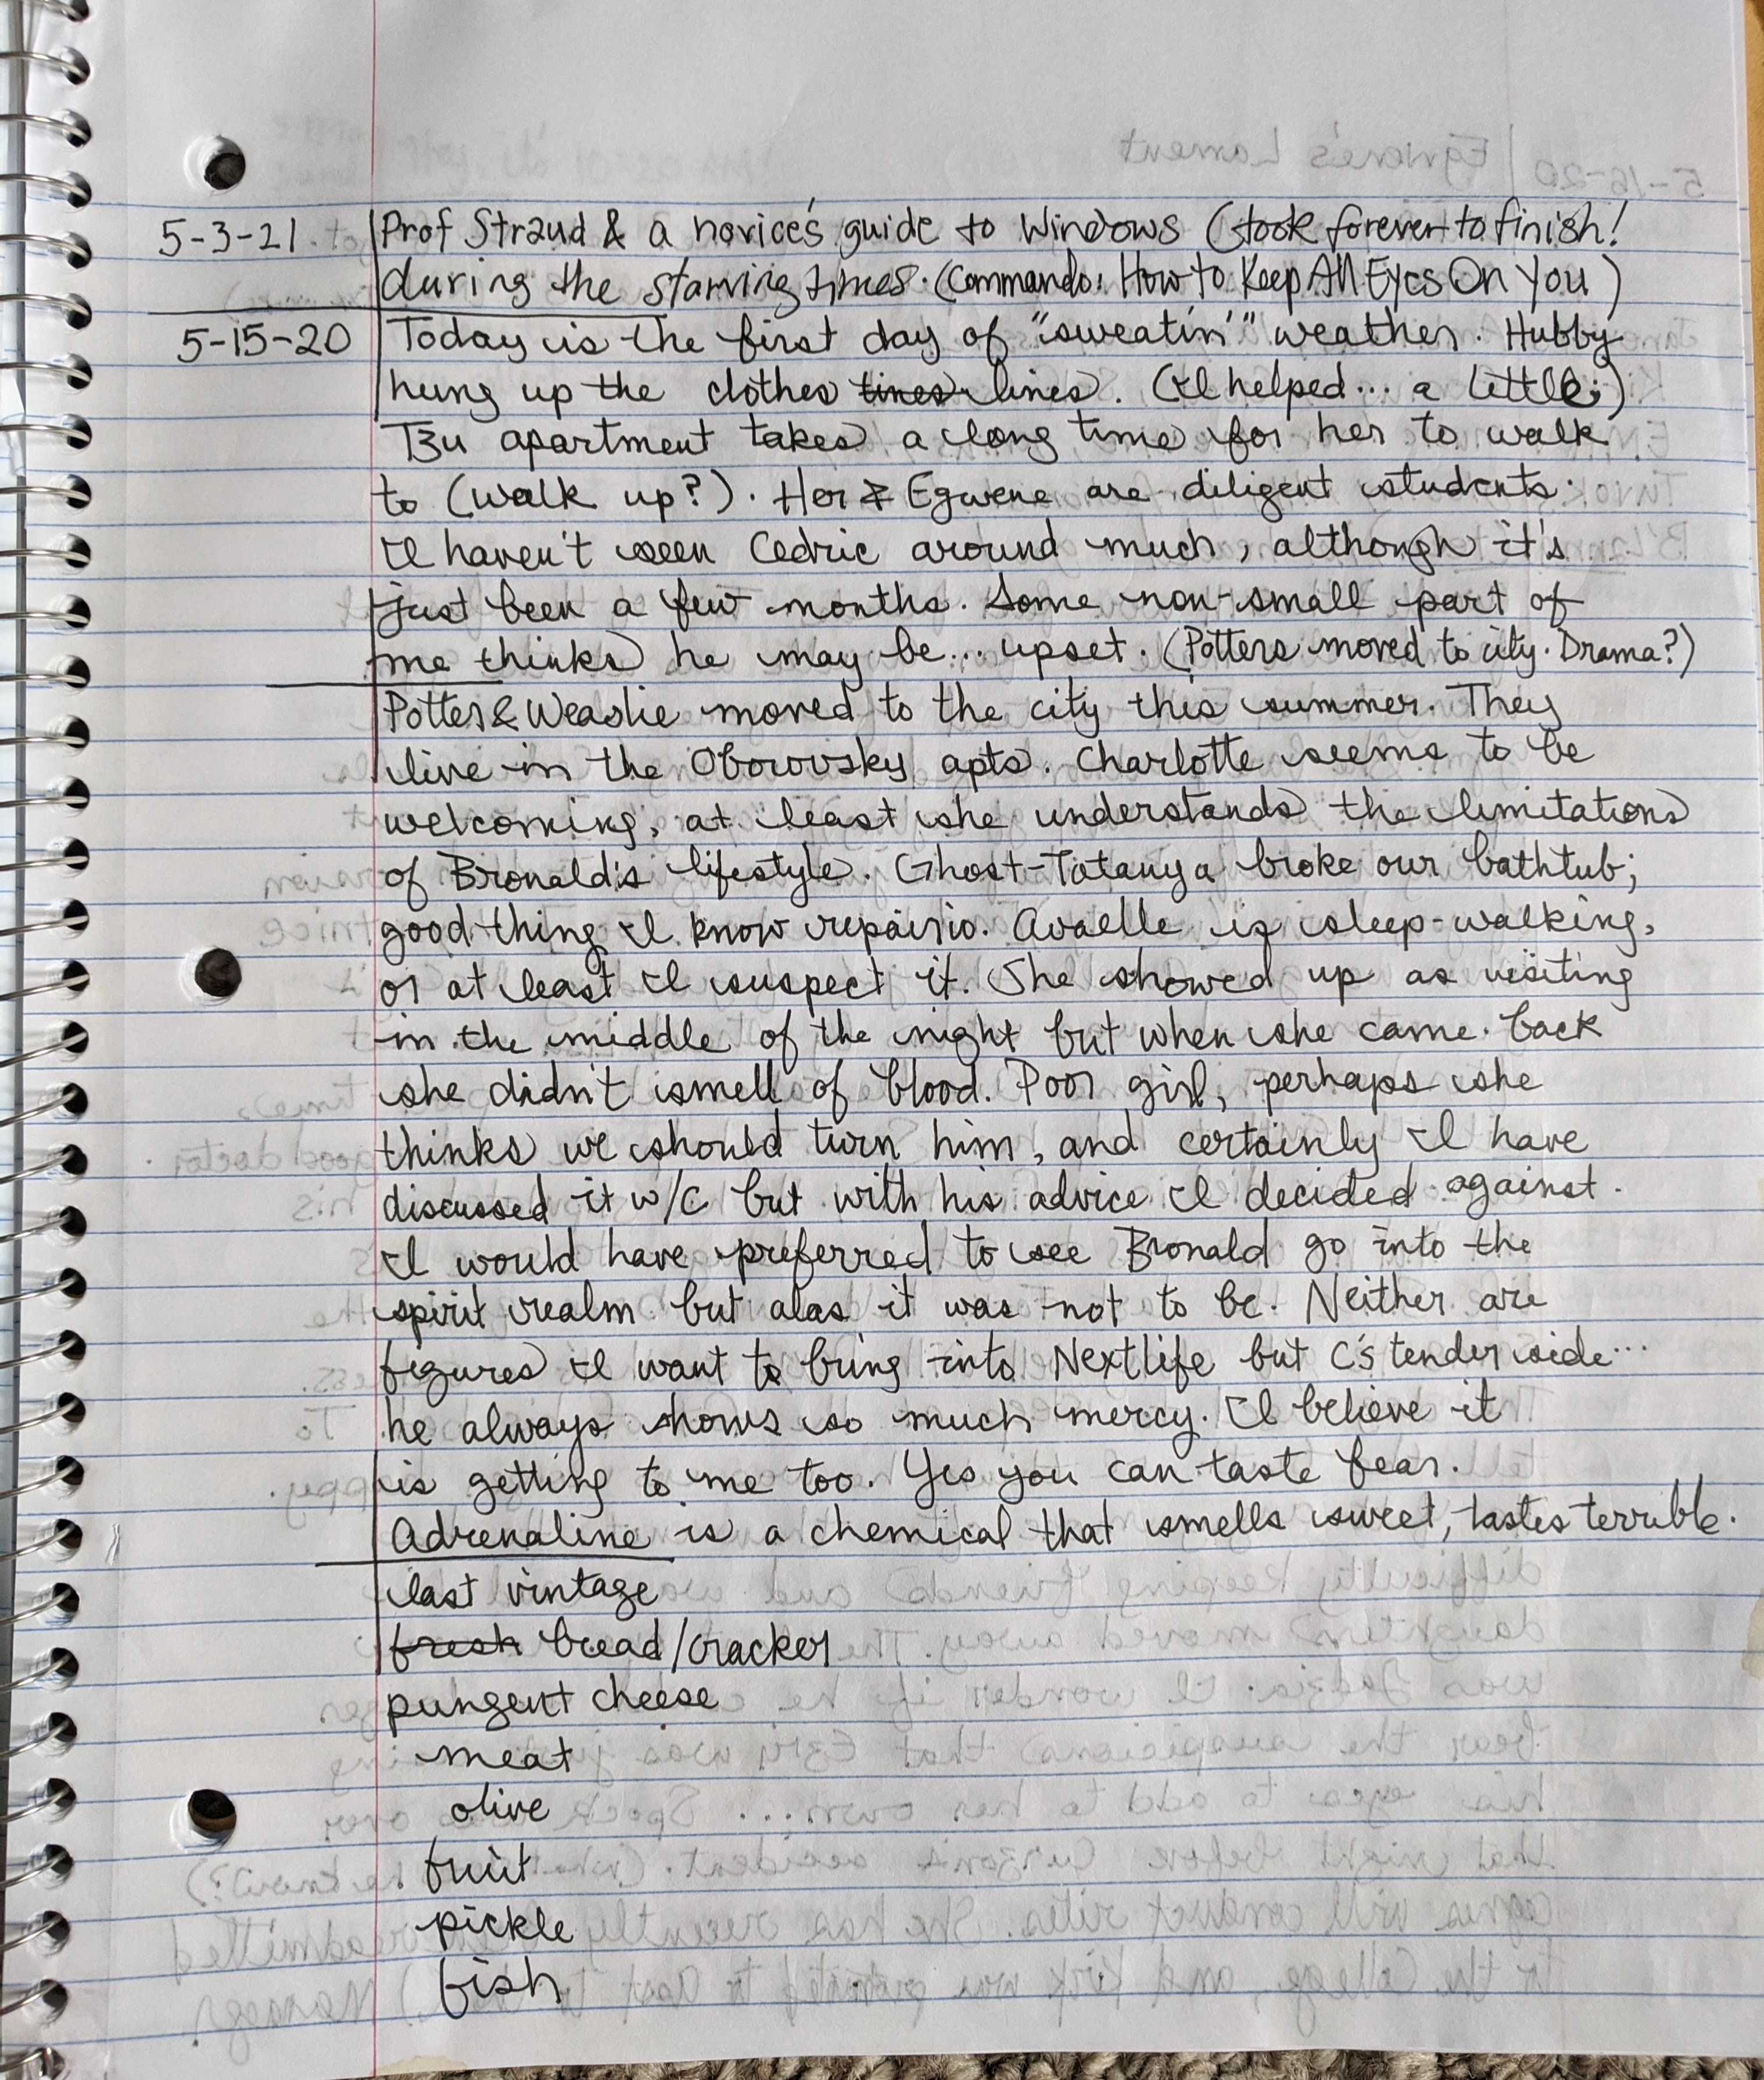 5-3-21. Prof Straud & a novice's guide to Windows (took forever to finish!
during the starving times. (Commando: How to Keep All Eyes On You)
5-15-20 Today is the first day of "sweatin'" weather. Hubby
hung up the clothes tines lines. (I helped... a little;)
Tzu apartment takes a long time for her to walk
to (walk up?). Her & Egwene are diligent students.
I haven't seen Cedric around much, although it's
just been a few months. Some non-small part of
me thinks he may be... upset. (Potters moved to city. Drama?)
Potter & Weaslie moved to the city this summer. They
live in the Obowvsky apts. Charlotte seems to be
welcoming, at least she understands the limitations
of Bronald's lifestyle. Ghost-Tatanya broke our bathtub;
good thing I know repairio. Avaelle is sleep-walking,
or at least I suspect it. She showed up as visiting
in the middle of the night but when she came back
she didn't smell of blood. Poor girl, perhaps she
thinks we should turn him, and certainly I have
discussed it w/C but with his advice I decided against.
I would have preferred to see Bronald go into the
spirit realm but alas it was not to be. Neither are
figures I want to bring into Nextlife but C's tender side...
he always shows so much mercy. I believe it
is getting to me too. Yes you can taste fear.
Adrenaline is a chemical that smells sweet, tastes terrible.
last vintage
fresh bread/cracker
pungent cheese
meat
olive
fruit
pickle
fish